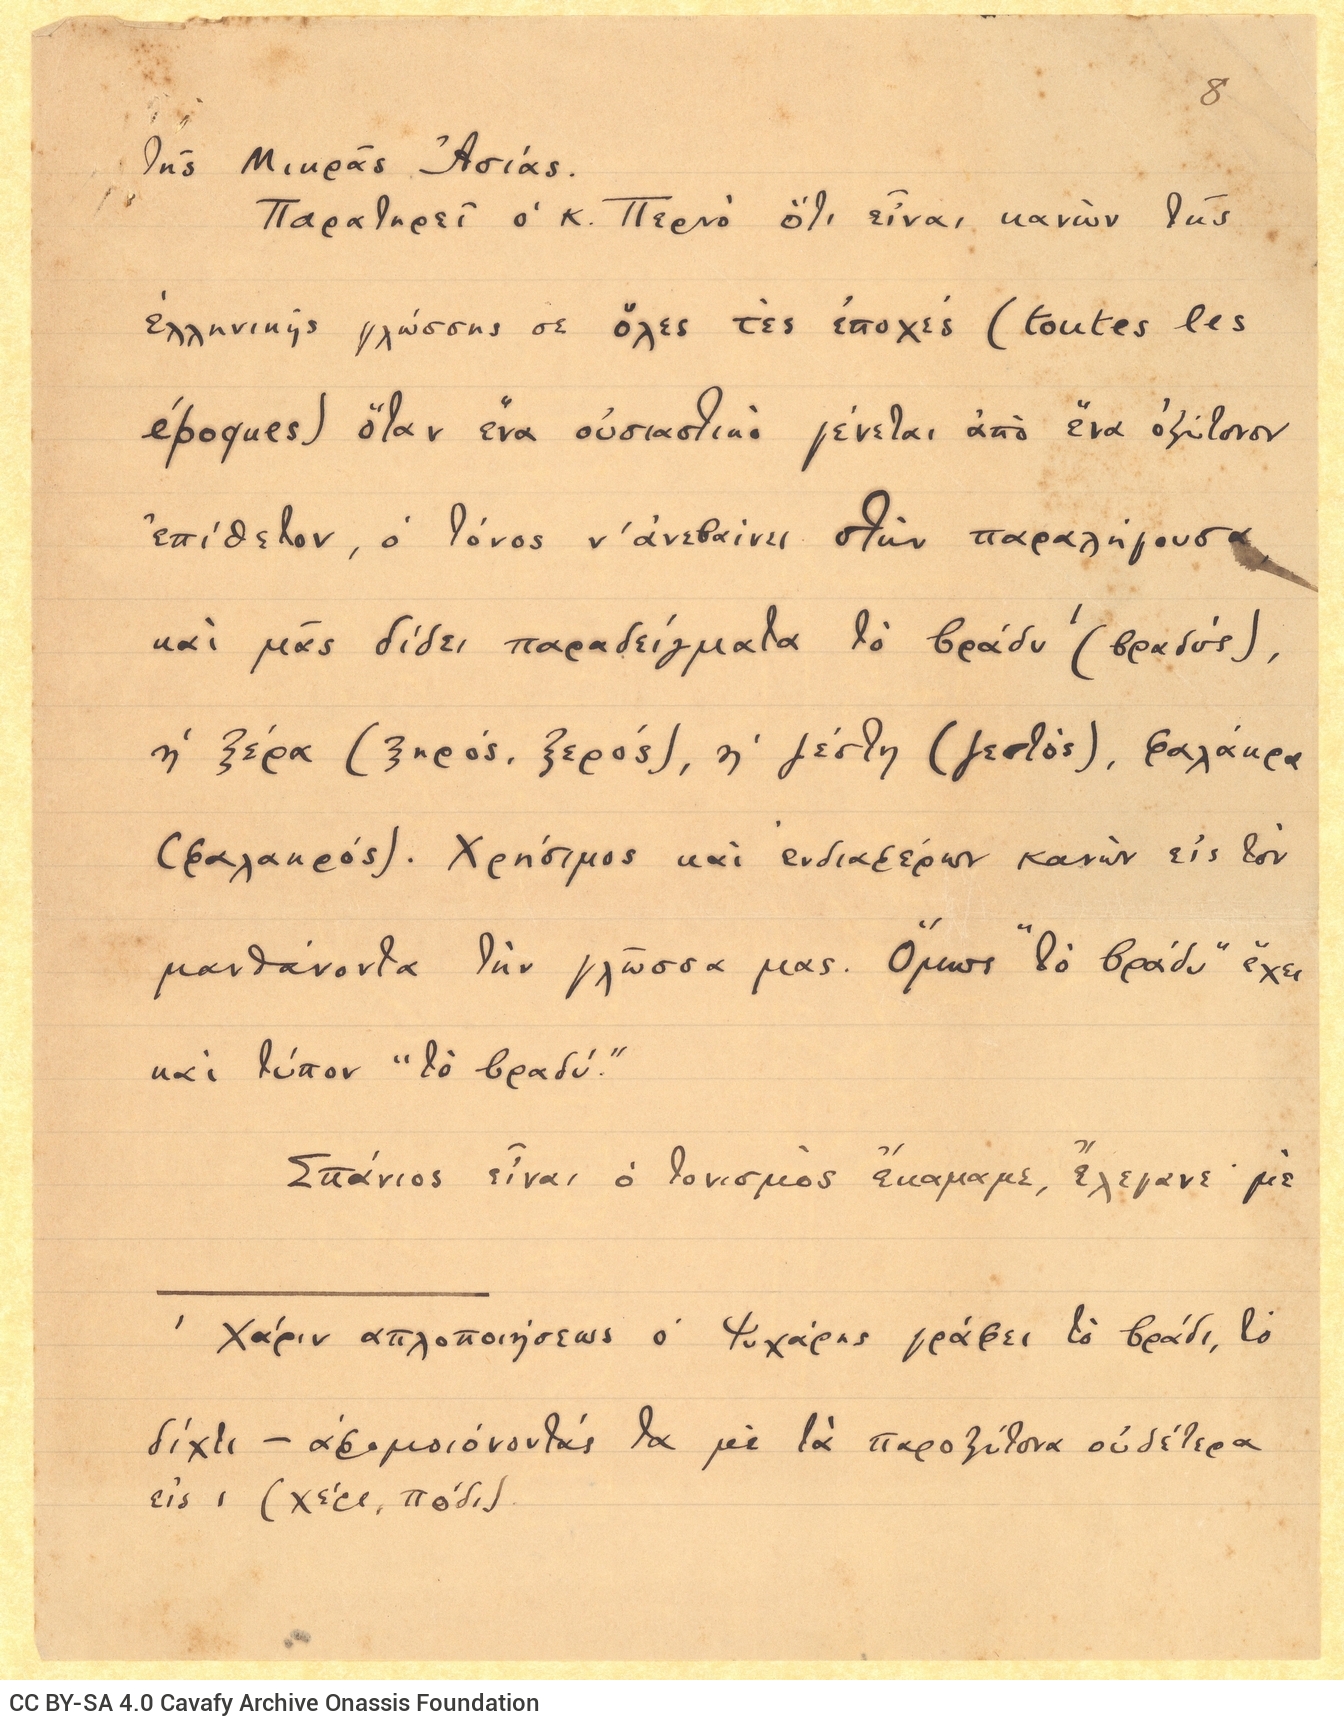 8
τῆς Μικρᾶς Ἀσίας.
Παρατηρεῖ ὁ κ. Περνὸ ὅτι εἶναι κανὼν τῆς
ἑλληνικῆς γλώσσης σε ὅλες τὲς ἐποχές (toutes les
époques) ὅταν ἕνα οὐσιαστικὸ γένεται ἀπὸ ἕνα ὀξύτονον
ἐπίθετον, ὁ τόνος ν' ἀνεβαίνει στὴν παραλήγουσα,
καὶ μᾶς δίδει παραδείγματα τὸ βράδυ¹ (βραδύς),
ἡ ξέρα (ξηρός, ξερός), ἡ ζέστη (ζεστὸς), φαλάκρα
(φαλακρός). Χρήσιμος καὶ ἐνδιαφέρων κανὼν εἰς τὸν
μανθάνοντα τὴν γλῶσσα μας. Ὅμως "τὸ βράδυ" ἔχει
καὶ τύπον "τὸ βραδύ."
Σπάνιος εἶναι ὁ τονισμὸς ἔκαμαμε, ἔλεγανε· μὲ
¹ Χάριν απλοποιήσεως ὁ Ψυχάρης γράφει τὸ βράδι, τὸ
δίχτι — ἀφομοιόνοντάς τα μὲ τὰ παροξύτονα οὐδέτερα
εἰς ι (χέρι, πόδι).
CC BY-SA 4.0 Cavafy Archive Onassis Foundation